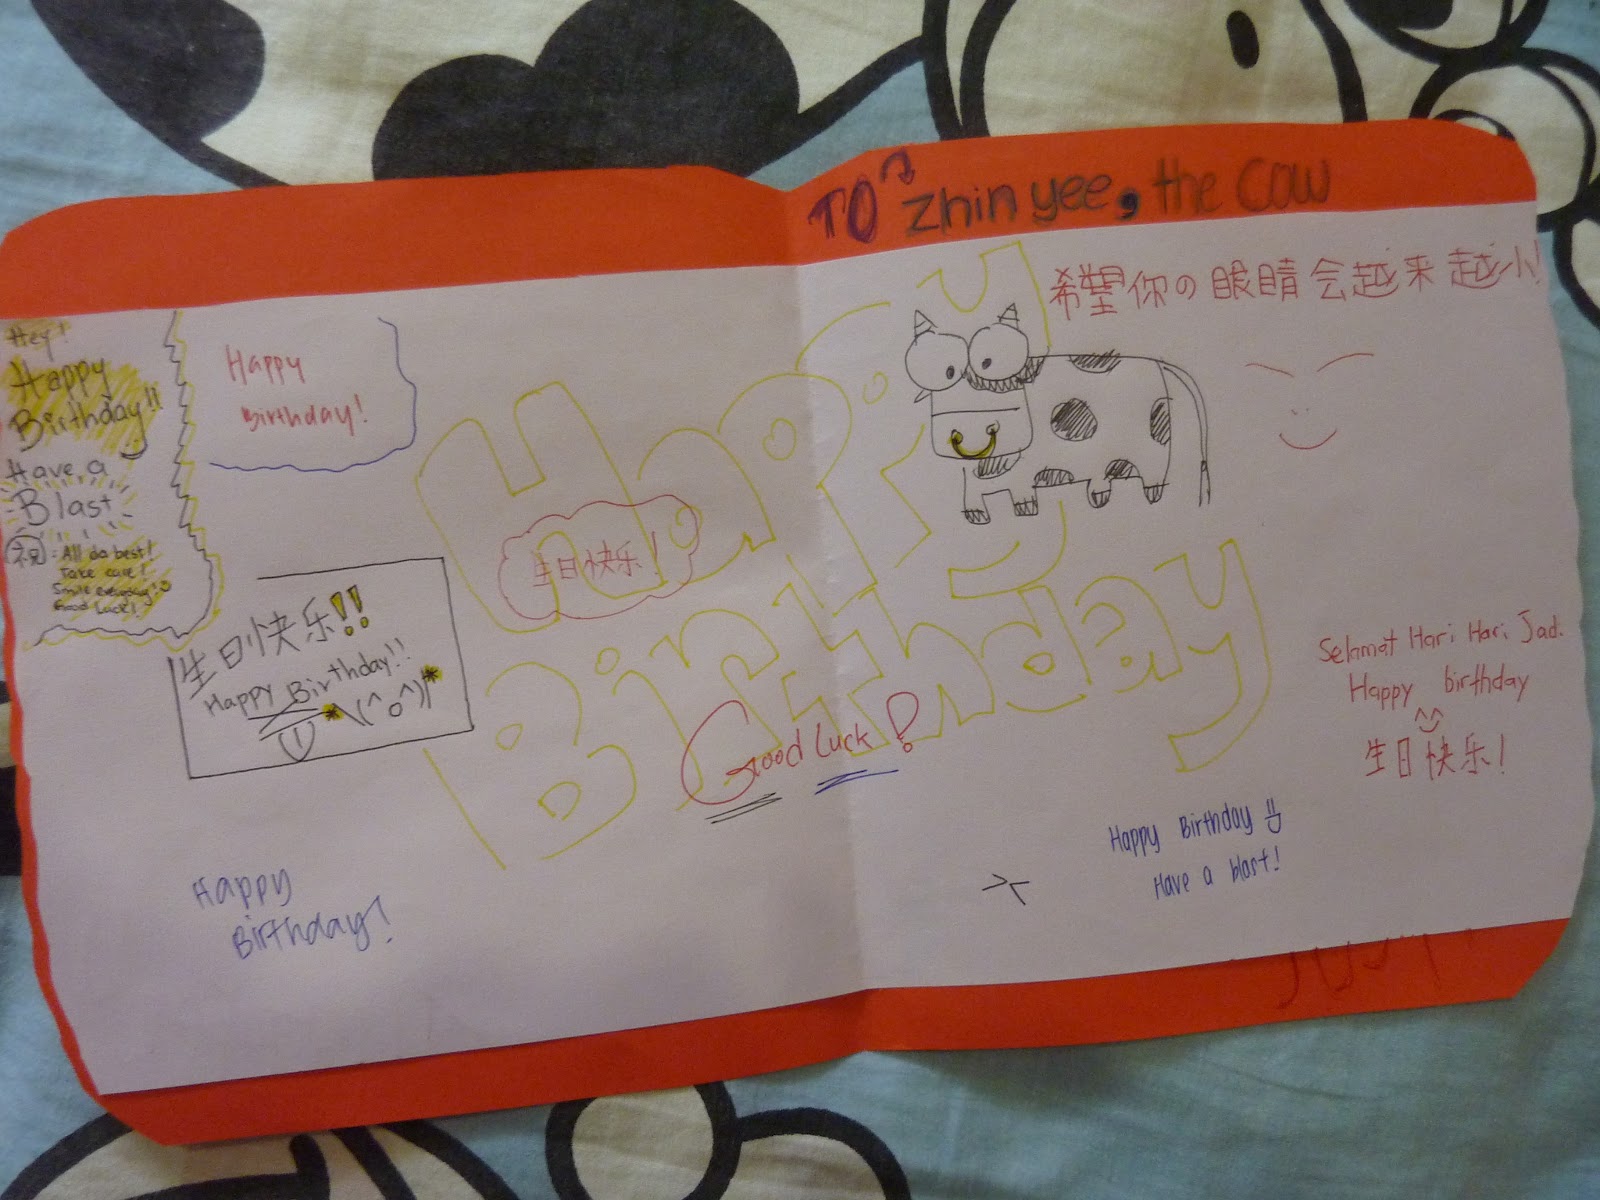 TO zhin yee, the cow
希望你の眼睛会越来越小!
Hey!
Happy
Birthday!!
Have a
Blast
祝: All da best!
Take care!
Smile everyday!
Good Luck!
Happy
Birthday!
Happy
Birthday
生日快乐!
生日快乐!!
Happy Birthday!!
*\(^o^)/*
Good Luck!
Selamat Hari Hari Jad.
Happy birthday
生日快乐!
Happy Birthday
Have a blast!
Happy
Birthday!